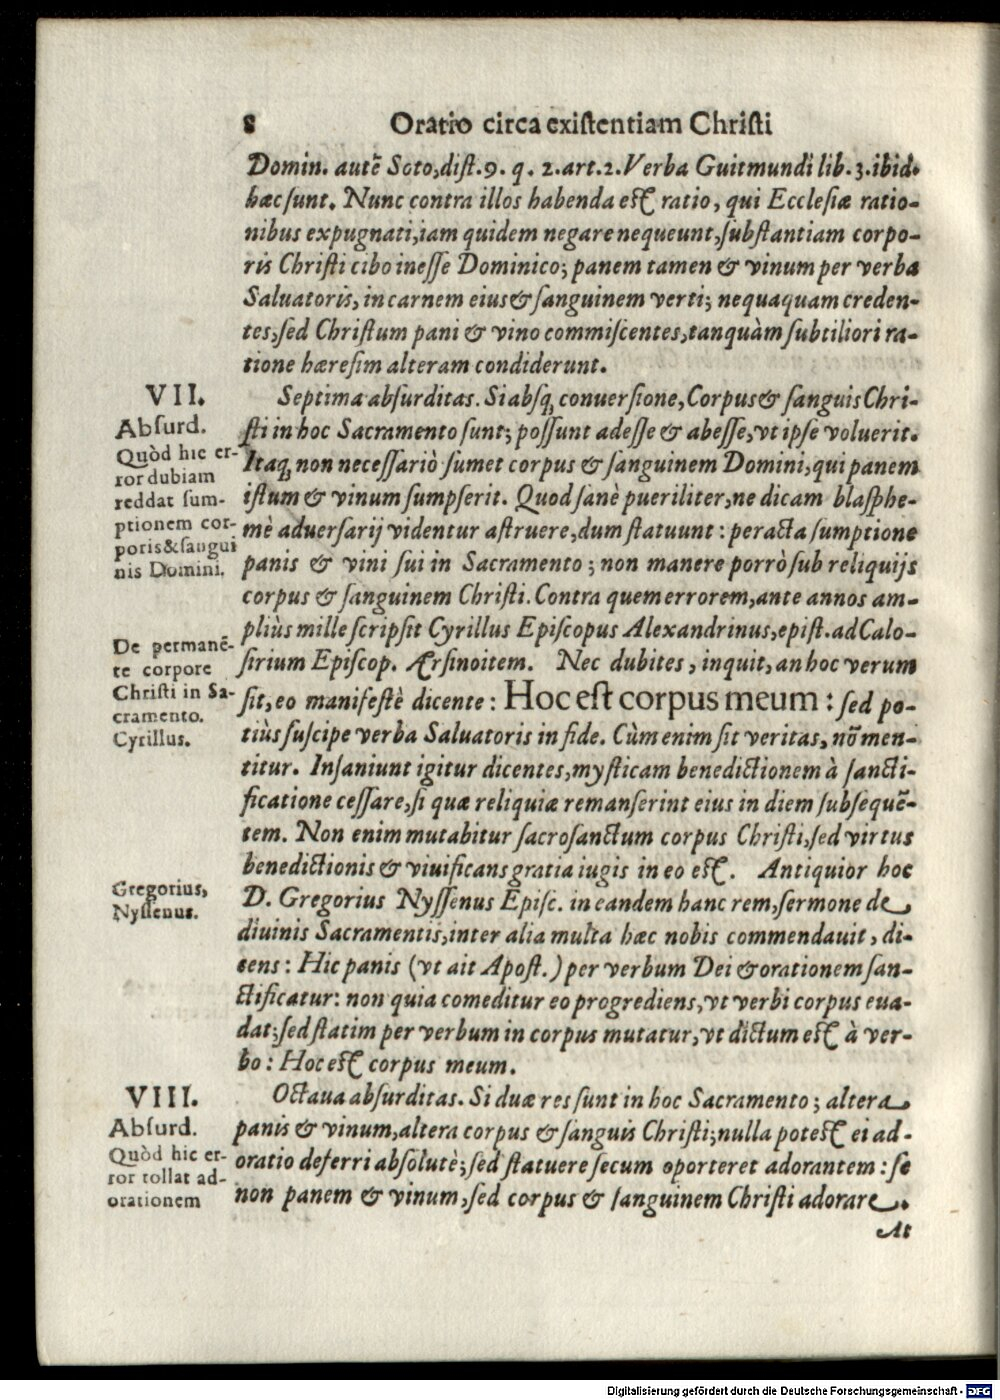 8 Oratio circa existentiam Christi
Domin. autē Soto, dist. 9. q. 2. art. 2. Verba Guitmundi lib. 3. ibid.
hæc sunt. Nunc contra illos habenda est ratio, qui Ecclesiæ ratio-
nibus expugnati, iam quidem negare nequeunt, substantiam corpo-
ris Christi cibo inesse Dominico; panem tamen & vinum per verba
Saluatoris, in carnem eius & sanguinem verti; nequaquam creden-
tes, sed Christum pani & vino commiscentes, tanquàm subtiliori ra-
tione hæresim alteram condiderunt.
VII.
Absurd.
Quòd hic er-
ror dubiam
reddat sum-
ptionem cor-
poris & sangui
nis Domini.
Septima absurditas. Si absq́; conuersione, Corpus & sanguis Chri-
sti in hoc Sacramento sunt; possunt adesse & abesse, vt ipse voluerit.
Itaq́; non necessariò sumet corpus & sanguinem Domini, qui panem
istum & vinum sumpserit. Quod sanè pueriliter, ne dicam blasphe-
mè aduersarij videntur astruere, dum statuunt: peracta sumptione
panis & vini sui in Sacramento; non manere porrò sub reliquijs
corpus & sanguinem Christi. Contra quem errorem, ante annos am-
pliùs mille scripsit Cyrillus Episcopus Alexandrinus, epist. ad Calo-
De permanē-
te corpore
Christi in Sa-
cramento.
Cyrillus.
sirium Episcop. Ærsinoitem. Nec dubites, inquit, an hoc verum
sit, eo manifestè dicente: Hoc est corpus meum: sed po-
tiùs suscipe verba Saluatoris in fide. Cùm enim sit veritas, nō men-
titur. Insaniunt igitur dicentes, mysticam benedictionem à sancti-
ficatione cessare, si quæ reliquiæ remanserint eius in diem subsequē-
tem. Non enim mutabitur sacrosanctum corpus Christi, sed virtus
benedictionis & viuificans gratia iugis in eo est. Antiquior hoc
Gregorius,
Nyssenus.
D. Gregorius Nyssenus Episc. in eandem hanc rem, sermone de
diuinis Sacramentis, inter alia multa hæc nobis commendauit, di-
cens: Hic panis (vt ait Apost.) per verbum Dei & orationem san-
ctificatur: non quia comeditur eo progrediens, vt verbi corpus eua-
dat; sed statim per verbum in corpus mutatur, vt dictum est à ver-
bo: Hoc est corpus meum.
VIII.
Absurd.
Quòd hic er-
ror tollat ad-
orationem
Octaua absurditas. Si duæ res sunt in hoc Sacramento; altera
panis & vinum, altera corpus & sanguis Christi; nulla potest ei ad-
oratio deferri absolutè; sed statuere secum oporteret adorantem: se
non panem & vinum, sed corpus & sanguinem Christi adorare.
At
Digitalisierung gefördert durch die Deutsche Forschungsgemeinschaft - DFG